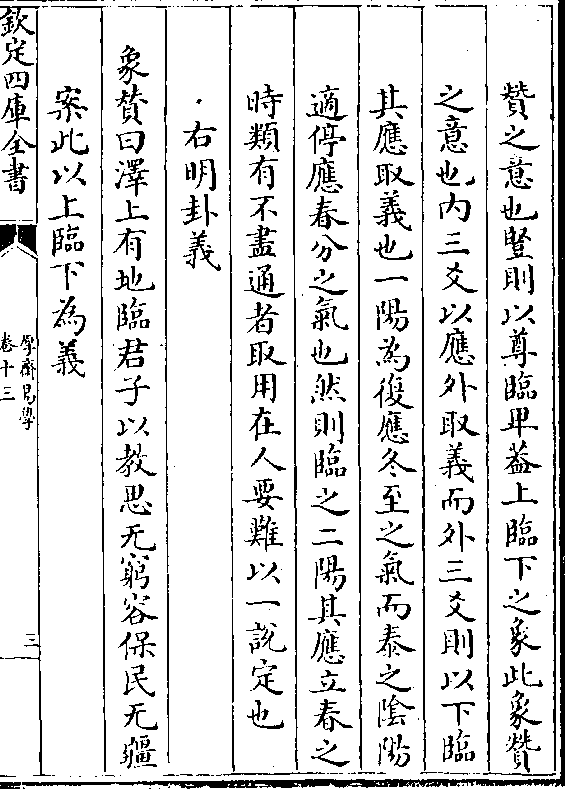 贊之意也豎則以尊臨卑葢上臨下之象此象贊
之意也内三爻以應外取義而外三爻則以下臨
其應取義也一陽為復應冬至之氣而泰之陰陽
適停應春分之氣也然則臨之二陽其應立春之
時類有不盡通者取用在人要難以一說定也
右明卦義
象贊曰澤上有地臨君子以教思无窮容保民无疆
案此以上臨下為義
欽定四庫全書
易學
卷十三
三